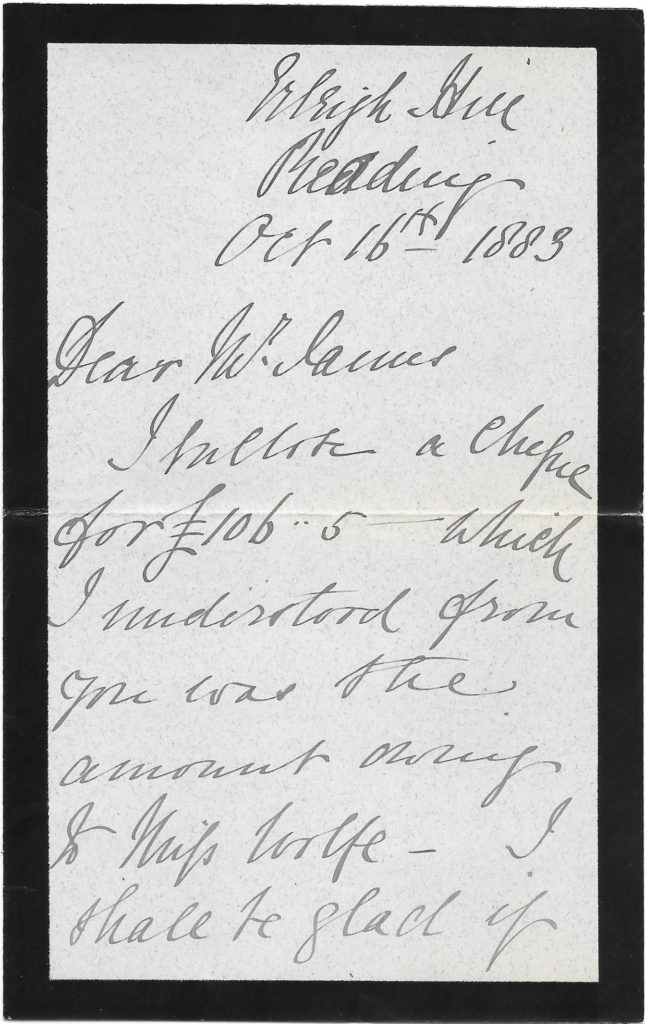 Erleigh Hill
Reading
Oct 16th 1883
Dear Mr. James
I enclose a cheque
for £106 .. 5 — which
I understood from
you was the
amount owing
to Miss Wolfe — I
shall be glad if